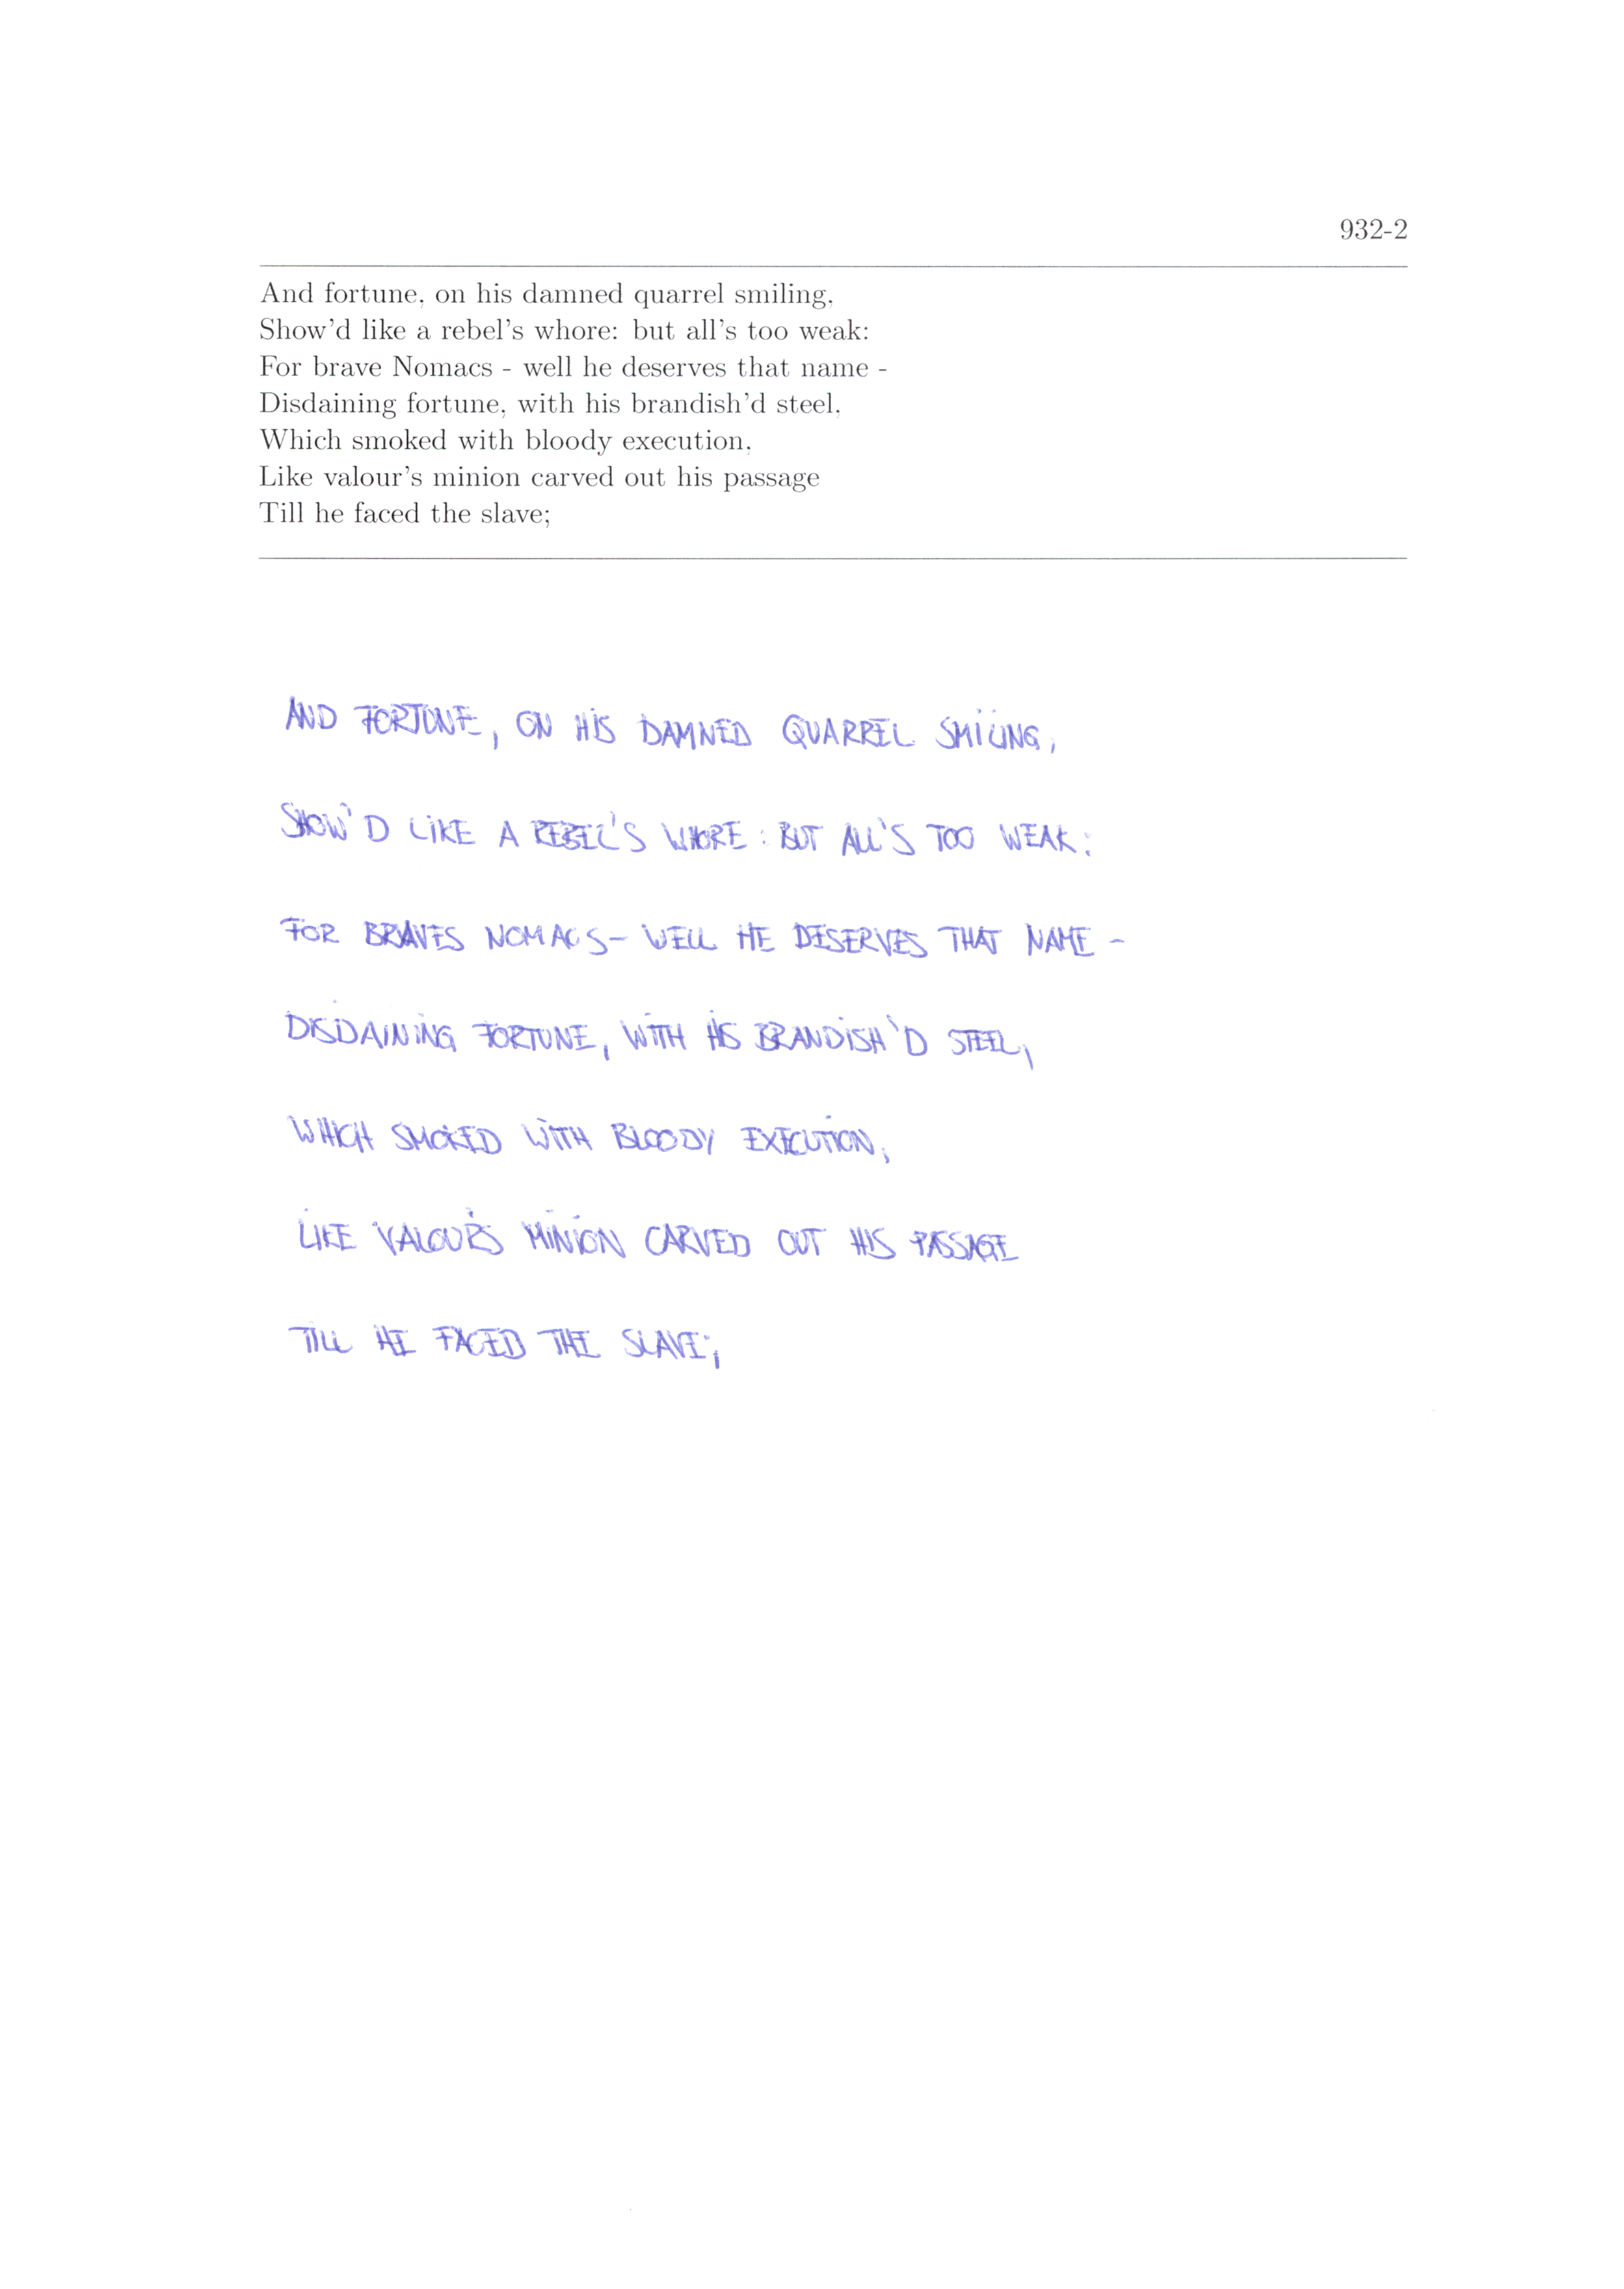 932-2
And fortune, on his damned quarrel smiling,
Show'd like a rebel's whore: but all's too weak:
For brave Nomacs - well he deserves that name -
Disdaining fortune, with his brandish'd steel,
Which smoked with bloody execution,
Like valour's minion carved out his passage
Till he faced the slave;
AND FORTUNE, ON HIS DAMNED QUARREL SMILING,
SHOW'D LIKE A REBEL'S WHORE: BUT ALL'S TOO WEAK:
FOR BRAVES NOMACS- WELL HE DESERVES THAT NAME -
DISDAINING FORTUNE, WITH HIS BRANDISH'D STEEL,
WHICH SMOKED WITH BLOODY EXECUTION,
LIKE VALOUR'S MINION CARVED OUT HIS PASSAGE
TILL HE FACED THE SLAVE;